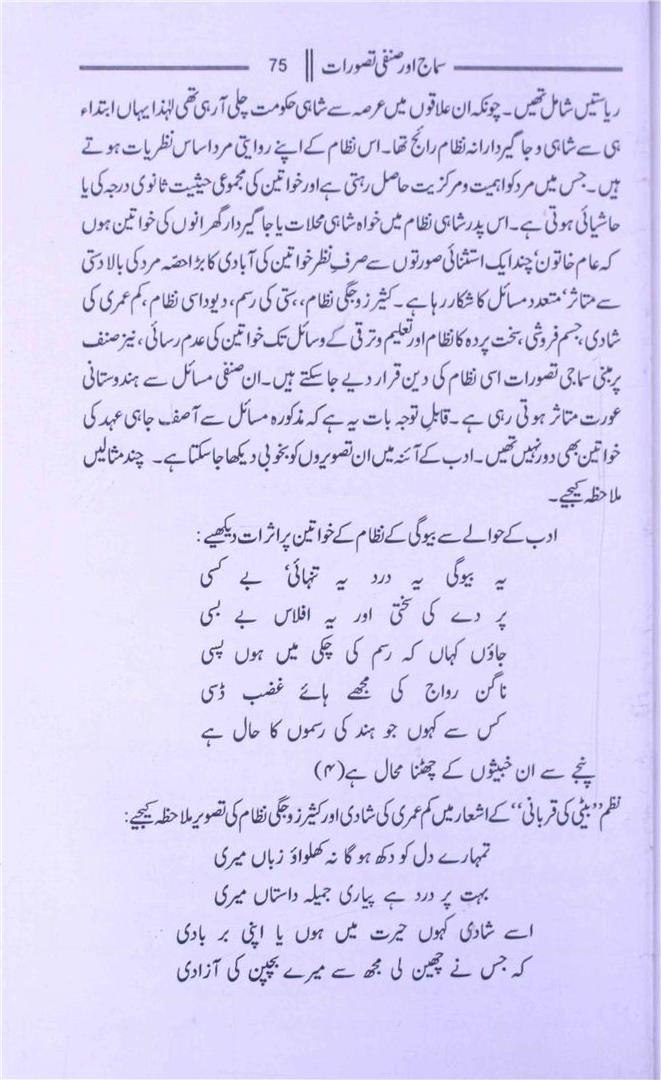 سماج اور صنفی تصورات || 75
ریاستیں شامل تھیں۔ چونکہ ان علاقوں میں عرصہ سے شاہی حکومت چلی آرہی تھی لہٰذا یہاں ابتداء
ہی سے شاہی و جاگیردارانہ نظام رائج تھا۔ اس نظام کے اپنے روایتی مرد اساس نظریات ہوتے
ہیں۔ جس میں مرد کو اہمیت و مرکزیت حاصل رہتی ہے اور خواتین کی مجموعی حیثیت ثانوی درجہ کی یا
حاشیائی ہوتی ہے۔ اس پدر شاہی نظام میں خواہ شاہی محلات یا جاگیردار گھرانوں کی خواتین ہوں
کہ عام خاتون‘ چند ایک استثنائی صورتوں سے صرفِ نظر خواتین کی آبادی کا بڑا حصّہ مرد کی بالادستی
سے متاثر‘ متعدد مسائل کا شکار رہا ہے۔ کثیر زوجگی نظام،، ستی کی رسم، دیوداسی نظام، کم عمری کی
شادی، جسم فروشی، سخت پردہ کا نظام اور تعلیم و ترقی کے وسائل تک خواتین کی عدم رسائی، نیز صنف
پر مبنی سماجی تصورات اسی نظام کی دین قرار دیے جاسکتے ہیں۔ ان صنفی مسائل سے ہندوستانی
عورت متاثر ہوتی رہی ہے۔ قابلِ توجہ بات یہ ہے کہ مذکورہ مسائل سے آصف جاہی عہد کی
خواتین بھی دور نہیں تھیں۔ ادب کے آئنہ میں ان تصویروں کو بخوبی دیکھا جاسکتا ہے۔ چند مثالیں
ملاحظہ کیجیے۔
ادب کے حوالے سے بیوگی کے نظام کے خواتین پر اثرات دیکھیے:
یہ بیوگی یہ درد یہ تنہائی‘ بے کسی
پر دے کی سختی اور یہ افلاس بے بسی
جاؤں کہاں کہ رسم کی چکی میں ہوں پسی
ناگن رواج کی مجھے ہائے غضب ڈسی
کس سے کہوں جو ہند کی رسموں کا حال ہے
پنجے سے ان خبیثوں کے چھٹنا محال ہے(۴)
نظم ’’بیٹی کی قربانی‘‘ کے اشعار میں کم عمری کی شادی اور کثیر زوجگی نظام کی تصویر ملاحظہ کیجیے:
تمہارے دل کو دکھ ہوگا نہ کھلواؤ زباں میری
بہت پر درد ہے پیاری جمیلہ داستاں میری
اسے شادی کہوں حیرت میں ہوں یا اپنی بر بادی
کہ جس نے چھین لی مجھ سے میرے بچپن کی آزادی